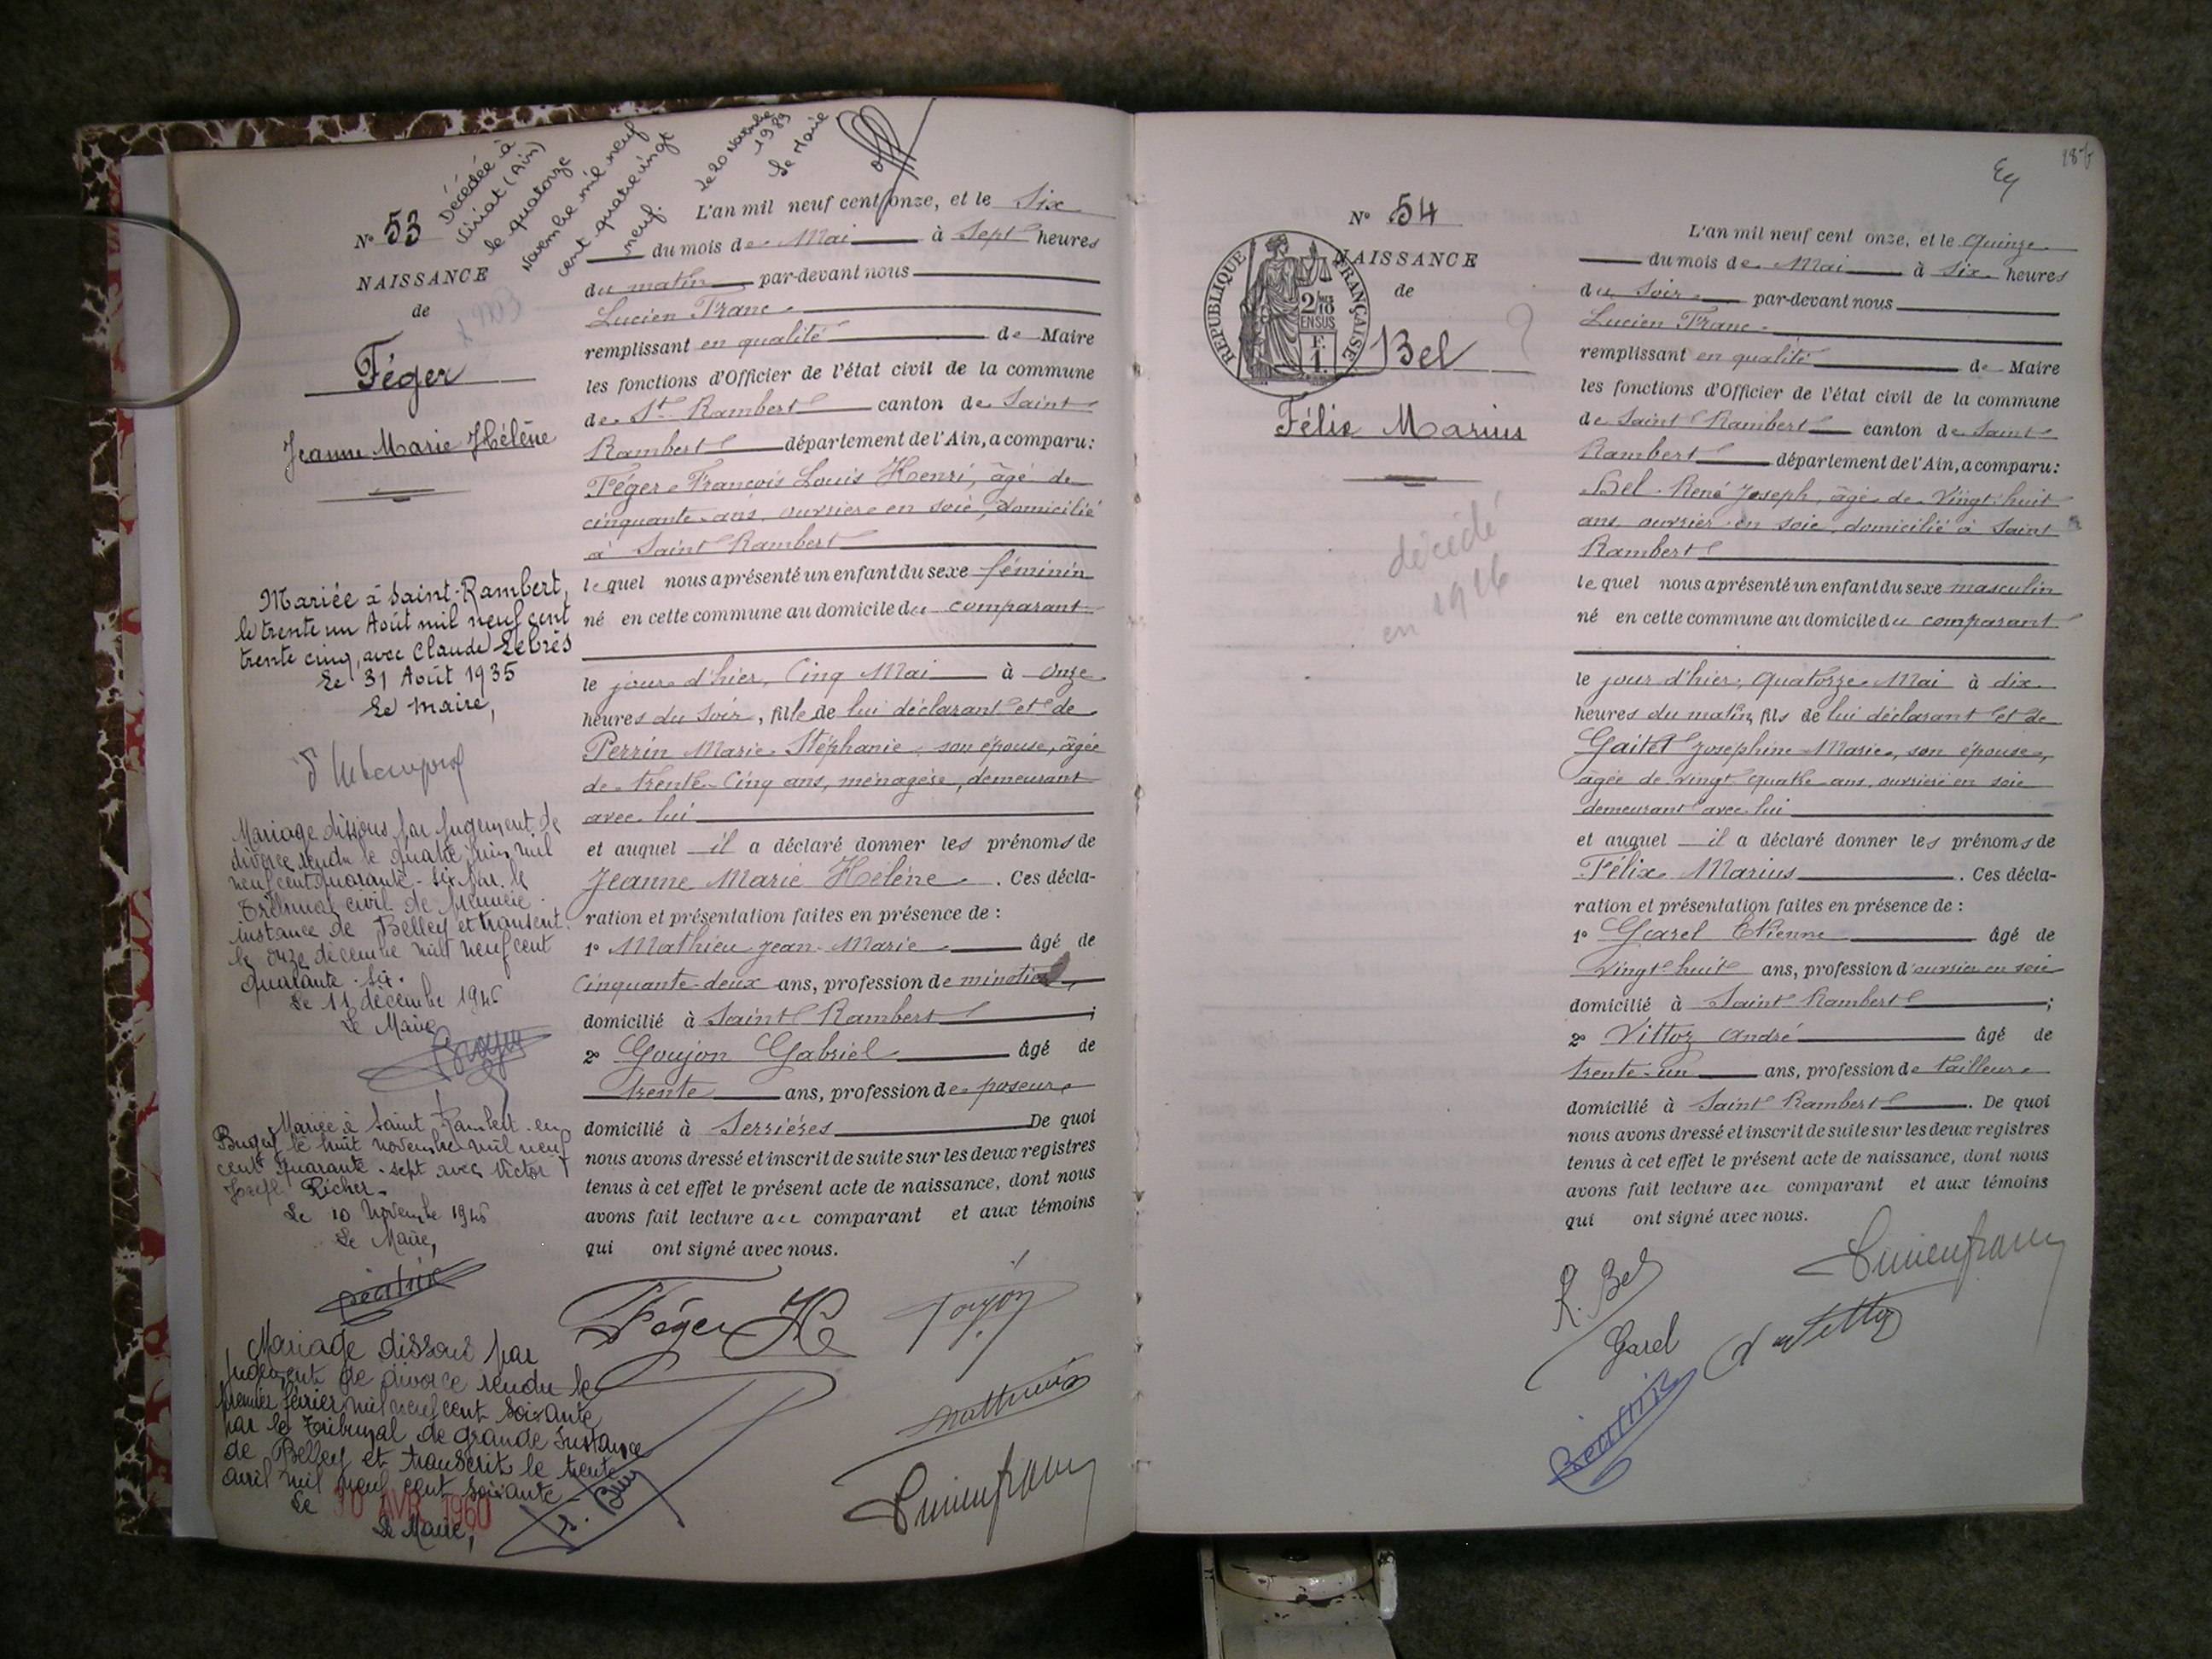 Décédée à
Viriat (Ain)
le quatorze
Novembre mil neuf
cent quatre vingt
neuf.
Le 20 Novembre
1989
Le Maire
N° 53
NAISSANCE
de
Féger
Jeanne Marie Hélène
Mariée à Saint-Rambert,
le trente un Août mil neuf cent
trente cinq, avec Claude Lebrès
Le 31 Août 1935
Le Maire,
Mariage dissous par jugement de
divorce rendu le quatre juin mil
neuf cent quarante-six par le
Tribunal civil de première
instance de Belley et transcrit
le onze décembre mil neuf cent
quarante-six.
Le 11 décembre 1946
Le Maire
Mariée à Saint Rambert-en
Bugey le huit novembre mil neuf
cent quarante-sept avec Victor
Joseph Richer.
Le 10 Novembre 1946
Le Maire,
Mariage dissous par
Jugement de divorce rendu le
premier février mil neuf cent soixante
par le Tribunal de grande Instance
de Belley et transcrit le trente
avril mil neuf cent soixante-
Le 30 AVR 1960
Le Maire,
L'an mil neuf cent onze, et le Six
du mois de Mai à Sept heures
du matin par-devant nous
Lucien Franc
remplissant en qualité de Maire
les fonctions d'Officier de l'état civil de la commune
de St Rambert canton de Saint
Rambert département de l'Ain, a comparu:
Féger François Louis Henri, âgé de
cinquante ans, ouvrier en soie, domicilié
à Saint Rambert
lequel nous a présenté un enfant du sexe féminin
né en cette commune au domicile du comparant
le jour d'hier, Cinq Mai à onze
heures du soir, fille de lui déclarant et de
Perrin Marie Stéphanie, son épouse, âgée
de trente-cinq ans, ménagère, demeurant
avec lui
et auquel il a déclaré donner les prénoms de
Jeanne Marie Hélène. Ces décla-
ration et présentation faites en présence de :
1° Mathieu Jean-Marie âgé de
Cinquante-deux ans, profession de minotier,
domicilié à Saint Rambert ;
2° Goujon Gabriel âgé de
trente ans, profession de poseur
domicilié à Serrières De quoi
nous avons dressé et inscrit de suite sur les deux registres
tenus à cet effet le présent acte de naissance, dont nous
avons fait lecture au comparant et aux témoins
qui ont signé avec nous.
Féger H
Goujon
Mathieu
Lucien franc
187
N° 54
NAISSANCE
de
REPUBLIQUE FRANÇAISE
2/10
EN SUS
F.
1.
Bel
Félix Marius
décédé
en 1916
L'an mil neuf cent onze, et le quinze
du mois de Mai à Six heures
du Soir par-devant nous
Lucien Franc
remplissant en qualité de Maire
les fonctions d'Officier de l'état civil de la commune
de Saint Rambert canton de Saint
Rambert département de l'Ain, a comparu:
Bel René Joseph, âgé de Vingt-huit
ans, ouvrier en soie, domicilié à Saint
Rambert
lequel nous a présenté un enfant du sexe masculin
né en cette commune au domicile du comparant
le jour d'hier, quatorze Mai à dix
heures du matin, fils de lui déclarant et de
Gaitet Joséphine Marie, son épouse,
âgée de vingt quatre ans, ouvrière en soie
demeurant avec lui
et auquel il a déclaré donner les prénoms de
Félix Marius. Ces décla-
ration et présentation faites en présence de :
1° Garel Etienne âgé de
Vingt-huit ans, profession d'ouvrier en soie
domicilié à Saint Rambert ;
2° Vittoz André âgé de
trente-un ans, profession de tailleur
domicilié à Saint Rambert. De quoi
nous avons dressé et inscrit de suite sur les deux registres
tenus à cet effet le présent acte de naissance, dont nous
avons fait lecture au comparant et aux témoins
qui ont signé avec nous.
R. Bel
Lucien franc
Garel